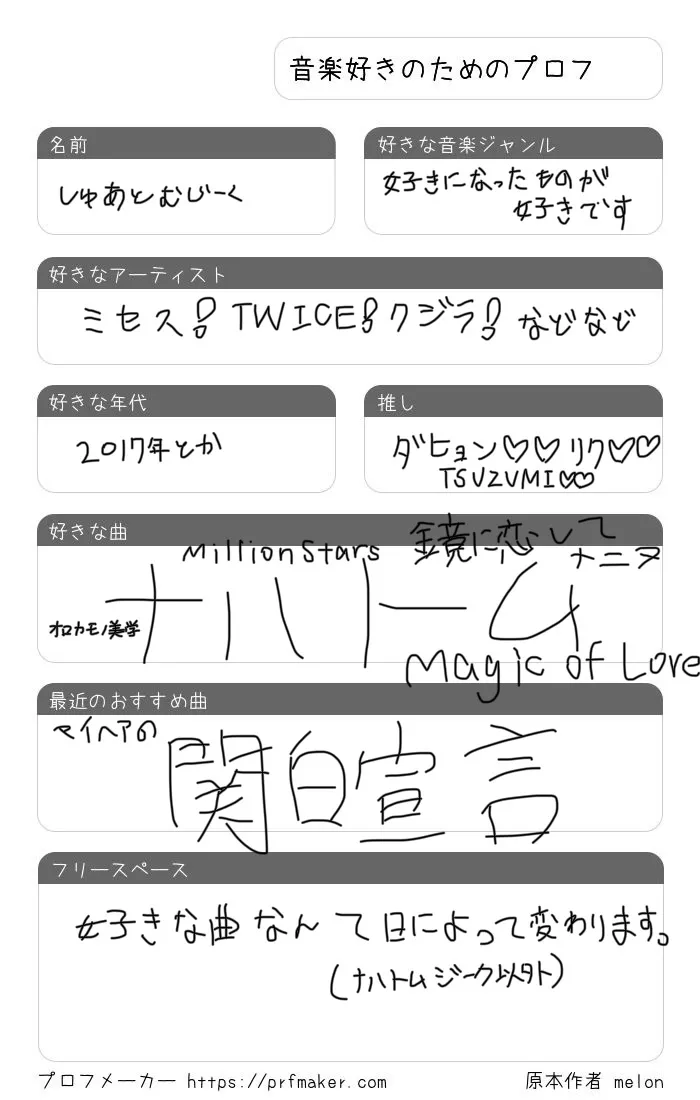 音楽好きのためのプロフ
名前
しゅあとむじーく
好きな音楽ジャンル
好きになったものが
好きです
好きなアーティスト
ミセス! TWICE! クジラ! などなど
好きな年代
2017年とか
推し
ダヒョン♡♡ リク♡♡
TSUZUMI♡♡
好きな曲
鏡に恋して
Million Stars
ナニヌ
ナハトーム
オロカモノ美学
Magic of Love
最近のおすすめ曲
マイヘアの
関白宣言
フリースペース
好きな曲なんて日によって変わります。
(ナハトムジーク以外)
プロフメーカー https://prfmaker.com
原本作者 melon